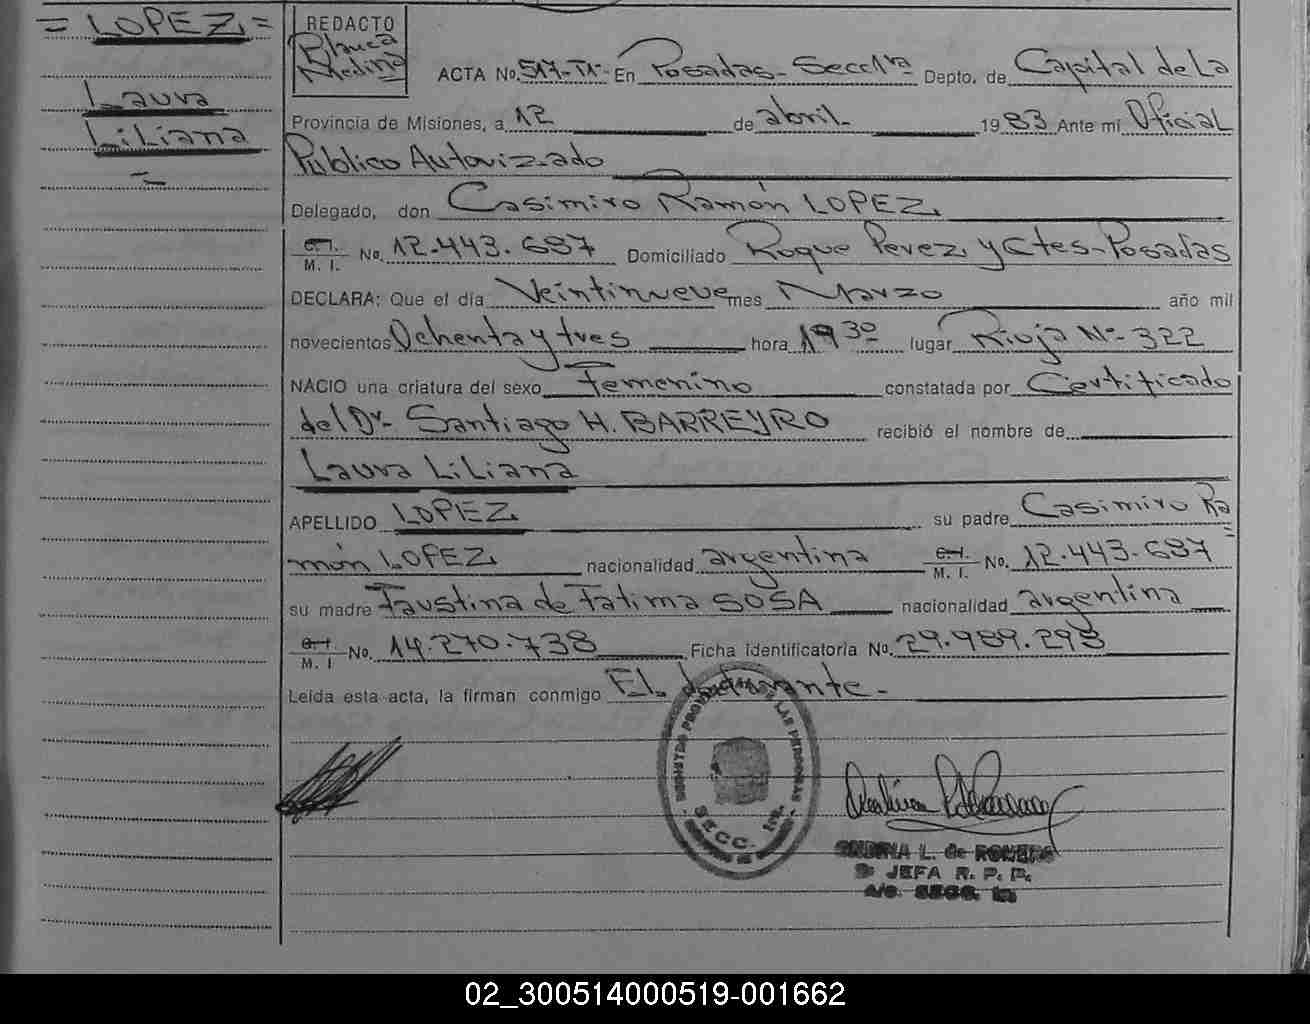 = LOPEZ =
Laura
Liliana
=
REDACTO
Blanca
Medina
ACTA No. 517-T1- En Posadas - Secc 1ra Depto. de Capital de La
Provincia de Misiones, a 12 de abril 1983 Ante mi Oficial
Público Autorizado
Delegado, don Casimiro Ramón LOPEZ
C.I. M. I. No. 12.443.687 Domiciliado Roque Perez y Ctes-Posadas
DECLARA: Que el día Veintinueve mes Marzo año mil
novecientos Ochenta y tres hora 19 30 lugar Rioja Nº- 322
NACIO una criatura del sexo Femenino constatada por Certificado
del Dr- Santiago H. BARREYRO recibió el nombre de
Laura Liliana
APELLIDO LOPEZ su padre Casimiro Ra
món LOPEZ nacionalidad argentina C.I. M. I. No. 12.443.687
su madre Faustina de Fatima SOSA nacionalidad argentina
C.I. M. I No. 14.270.738 Ficha identificatoria No. 29.989.298
Leída esta acta, la firman conmigo EL
LAS PERSONAS
SECC. 1ra.
L. de ROMERO
JEFA R. P. P.
A/C. SECC. 1a
02_300514000519-001662